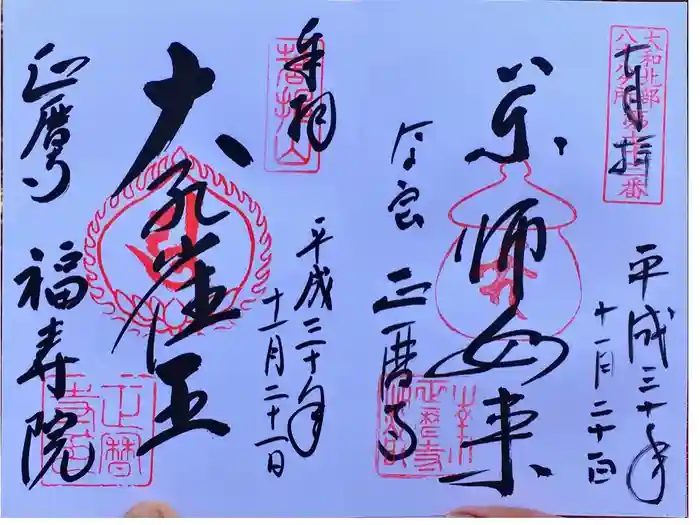 奉拝
大和北部
八十八ヶ所
平成三十年
十一月二十一日
薬師如来
奈良
正暦寺
奉拝
菩提山
平成三十年
十一月二十一日
大孔雀王
正暦寺
福寿院
正暦